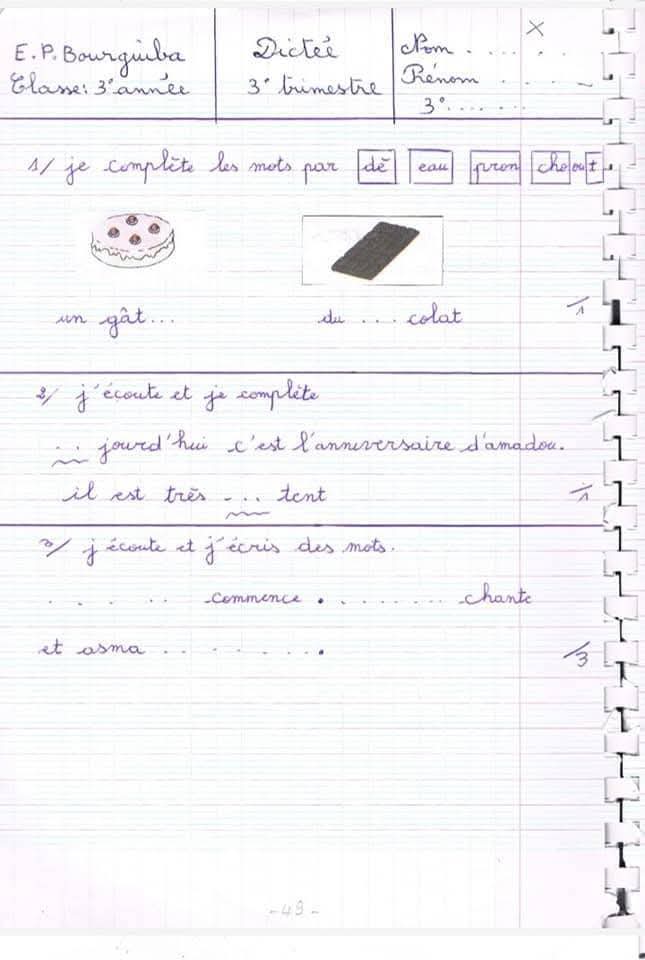 E.P. Bourguiba
Classe: 3° année
Dictée
3° trimestre
Nom . . . . . . .
Prénom . . . .
3° . . . . . .
1/ je complète les mots par dé eau pron cho out
un gât...
du ... colat
/1
2/ j'écoute et je complète
... jourd'hui c'est l'anniversaire d'amadou.
il est très ... tent
/1
3/ j'écoute et j'écris des mots.
. . . . . commence . . . . . . . . chante
et asma . . . . . . . .
/3
- 49 -